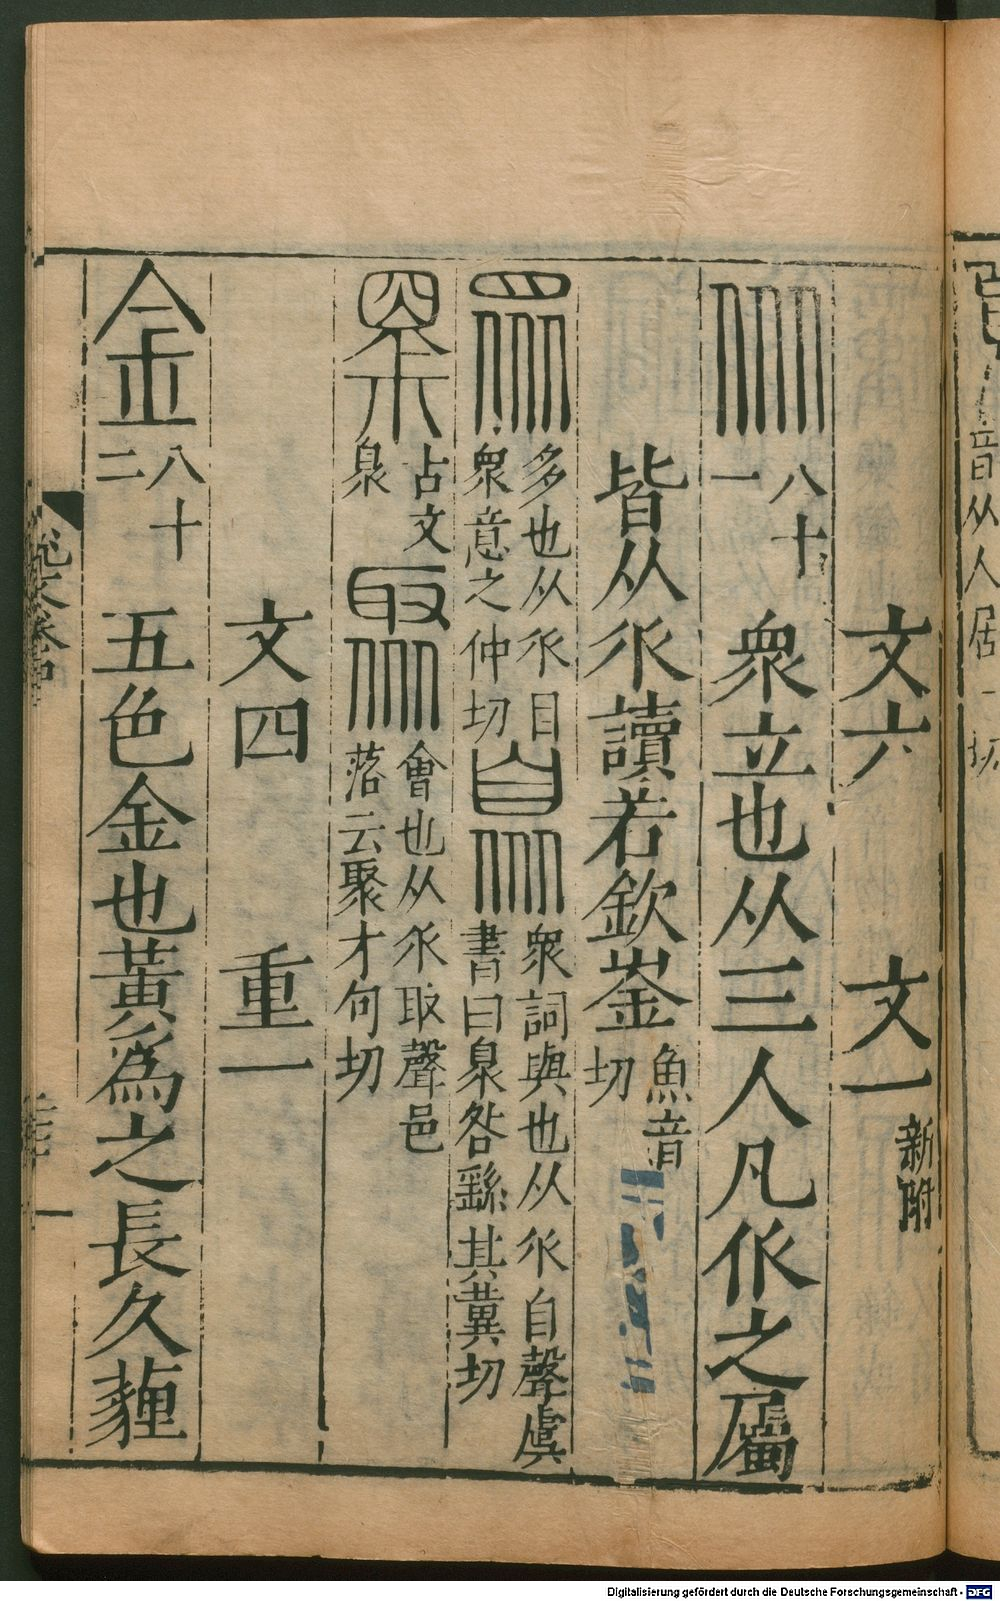 文六 文一 新附
㐺 八十一 衆立也从三人凡㐺之屬
皆从㐺讀若欽崟 魚音切
眾 多也从㐺目衆意之仲切 臮 衆詞與也从㐺自聲虞書曰臮咎繇其冀切
古文臮 聚 會也从㐺取聲邑落云聚才句切
文四 重一
金 八十二 五色金也黃爲之長久薶
Digitalisierung gefördert durch die Deutsche Forschungsgemeinschaft - DFG